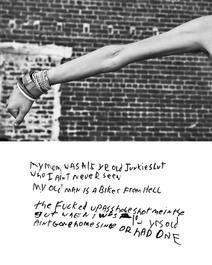 My MOM WAS A 15 YR OLD JUNKIE SLUT
WHO I AIN'T NEVER SEEN
MY OLD MAN IS A BIKER FROM HELL
the FUCKED UP ASSHOLE SHOT ME IN THE
BUT WHEN I WAS YRS OLD
AINT GONE HOME SINCE OR HAD ONE